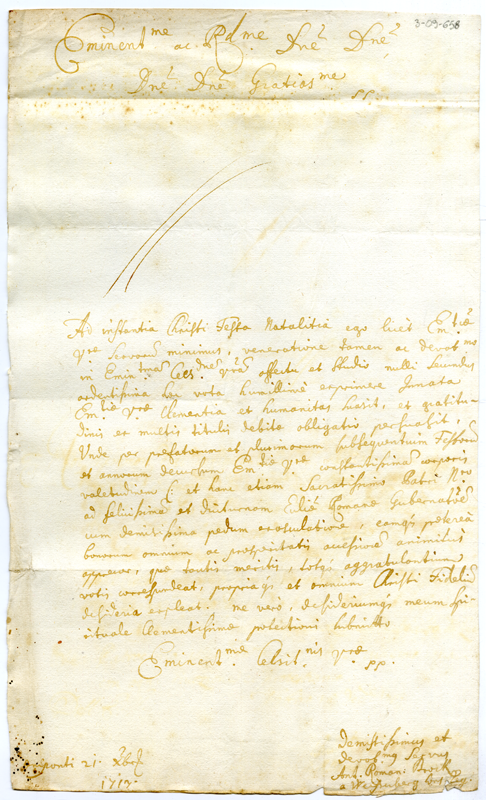 3-09-658
Eminent^me ac R^dme Dne^r Dne^r
Dne^r Dne^r Gratios^me
Ad instantia Christi Festa Natalitia ego licet Em^tiæ
Vræ Servorum minimus, veneratione tamen ac devot^mo
in Emin^tmam Cels^nem Vrã affectu et studio nulli secundus
ardentissima hæc vota humillimè exprimere Innata
Em^tiæ Vræ Clementia et humanitas suasit, et gratitu-
dinis ex multis titulis debita obligatio persuasit,
Unde per præfatorum ac plurimorum subsequentium Festorum
et annorum decursum Em^tiæ Vræ constantissimam corporis
valetudinem (et hanc etiam Sacratissimo Patri Nro
ad felicissimã et diuturnam Eccliæ Romanæ Gubernat^nem
cum demississima pedum exosculatione,
bonorum omnium ac prosperitatis accessionẽ animitus
apprecor, quæ tantis meritis, totq̃ aggratulantium
votis correspondeat, propriaq̃, et omnium Christi Fideliũ
desideria expleat. me vero, desideriumq̃ meum spi-
rituale Clementissimæ submitto
Eminent^mæ Celsit^nis Vræ
pp.
Demississimus et
Servus
Romani
a
ponti 21. Xbris
1717.